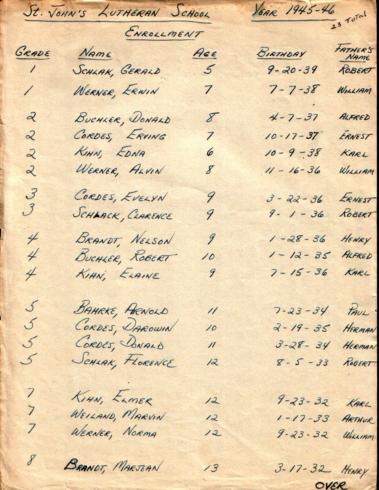 St. John's Lutheran School Year 1945-46
23 Total
Enrollment
Grade Name Age Birthday Father's Name
1 Schlak, Gerald 5 9-20-39 Robert
1 Werner, Erwin 7 7-7-38 William
2 Buchler, Donald 8 4-7-37 Alfred
2 Cordes, Erving 7 10-17-37 Ernest
2 Kihn, Edna 6 10-9-38 Karl
2 Werner, Alvin 8 11-16-36 William
3 Cordes, Evelyn 9 3-22-36 Ernest
3 Schlack, Clarence 9 9-1-36 Robert
4 Brandt, Nelson 9 1-28-36 Henry
4 Buchler, Robert 10 1-12-35 Alfred
4 Kihn, Elaine 9 7-15-36 Karl
5 Bahrke, Arnold 11 7-23-34 Paul
5 Cordes, Darowin 10 2-19-35 Herman
5 Cordes, Donald 11 3-28-34 Herman
5 Schlak, Florence 12 8-5-33 Robert
7 Kihn, Elmer 12 9-23-32 Karl
7 Weiland, Marvin 12 1-17-33 Arthur
7 Werner, Norma 12 9-23-32 William
8 Brandt, Marjean 13 3-17-32 Henry
OVER